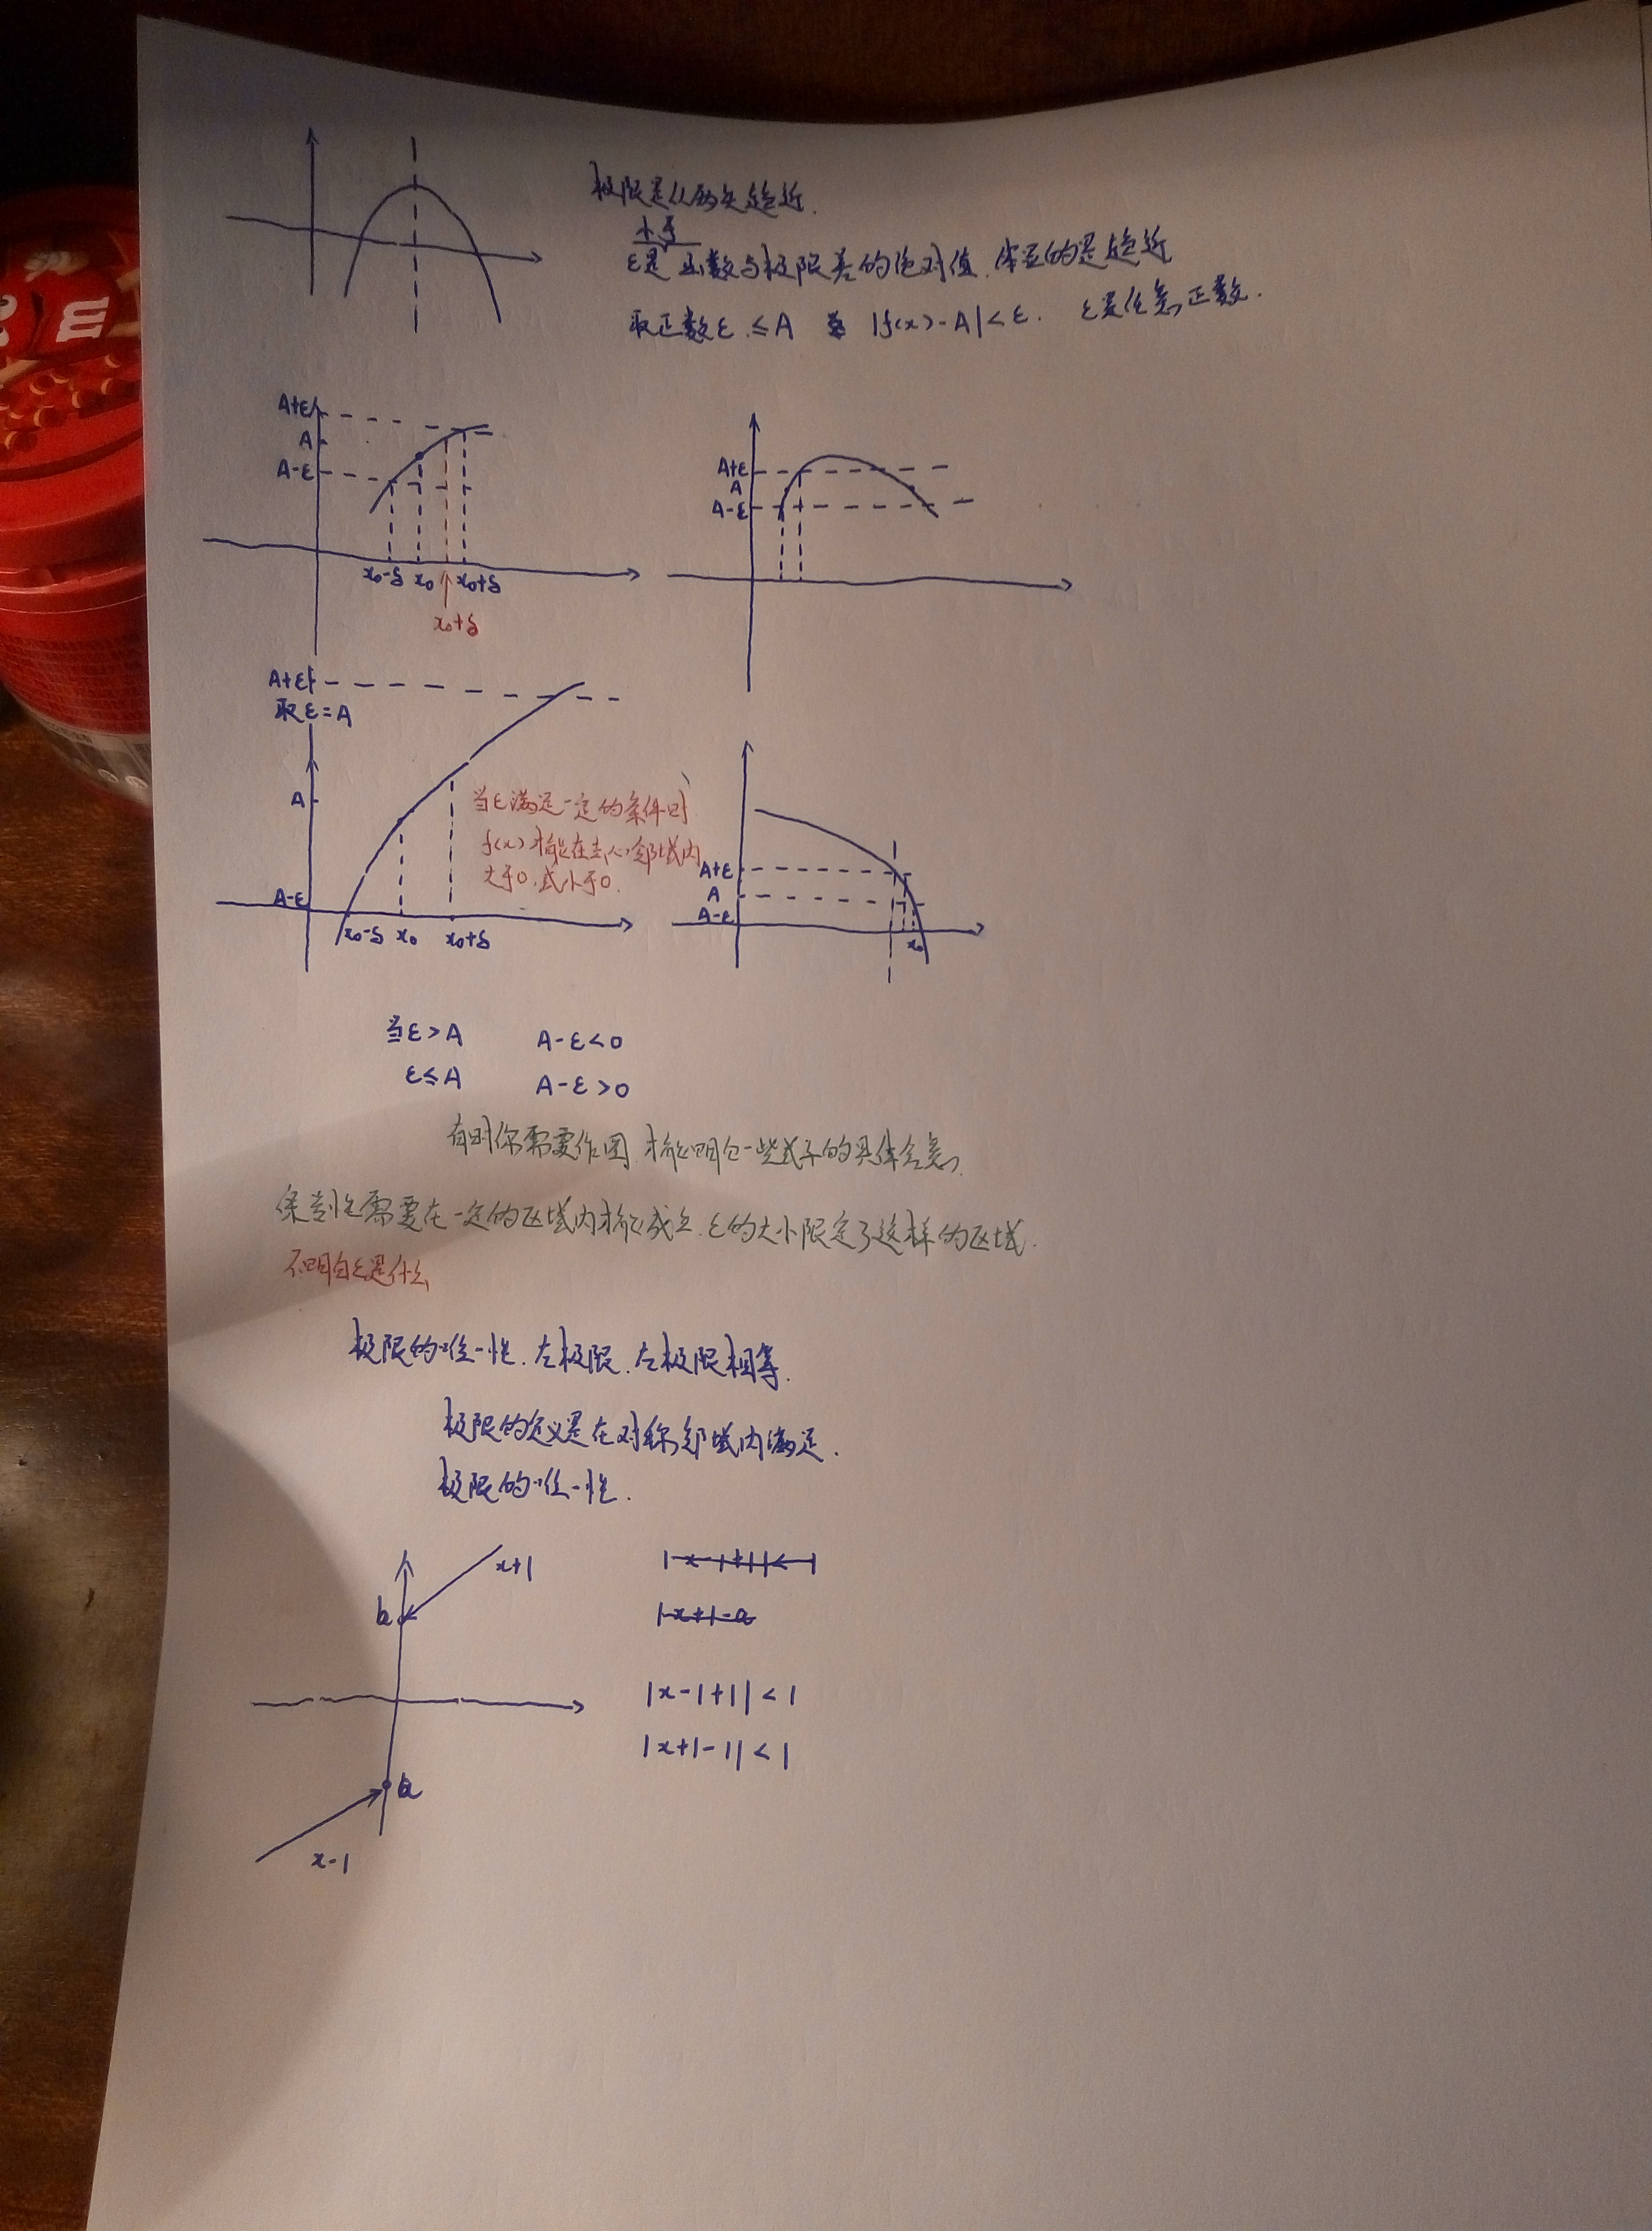 极限是从两头趋近.
小于
ε是 函数与极限差的绝对值.体现的是趋近
取正数ε ≤A |f(x)-A|<ε. ε是任意正数.
A+ε
A
A-ε
x₀-δ x₀ x₀+δ
x₀+δ
A+ε
A
A-ε
A+ε
取ε=A
A
A-ε
x₀-δ x₀ x₀+δ
当ε满足一定的条件时
f(x)才能在去心邻域内
大于0.或小于0.
A+ε
A
A-ε
x₀
当ε>A A-ε<0
ε≤A A-ε>0
有时你需要作图.才能明白一些式子的具体含意.
保号性需要在一定的区域内才能成立.ε的大小限定了这样的区域.
不明白ε是什么
极限的唯一性.左极限.右极限相等.
极限的定义是在对称邻域内满足.
极限的唯一性.
x+1
b
|x-1+1|<1
|x+1-a
|x-1+1|<1
|x+1-1|<1
a
x-1